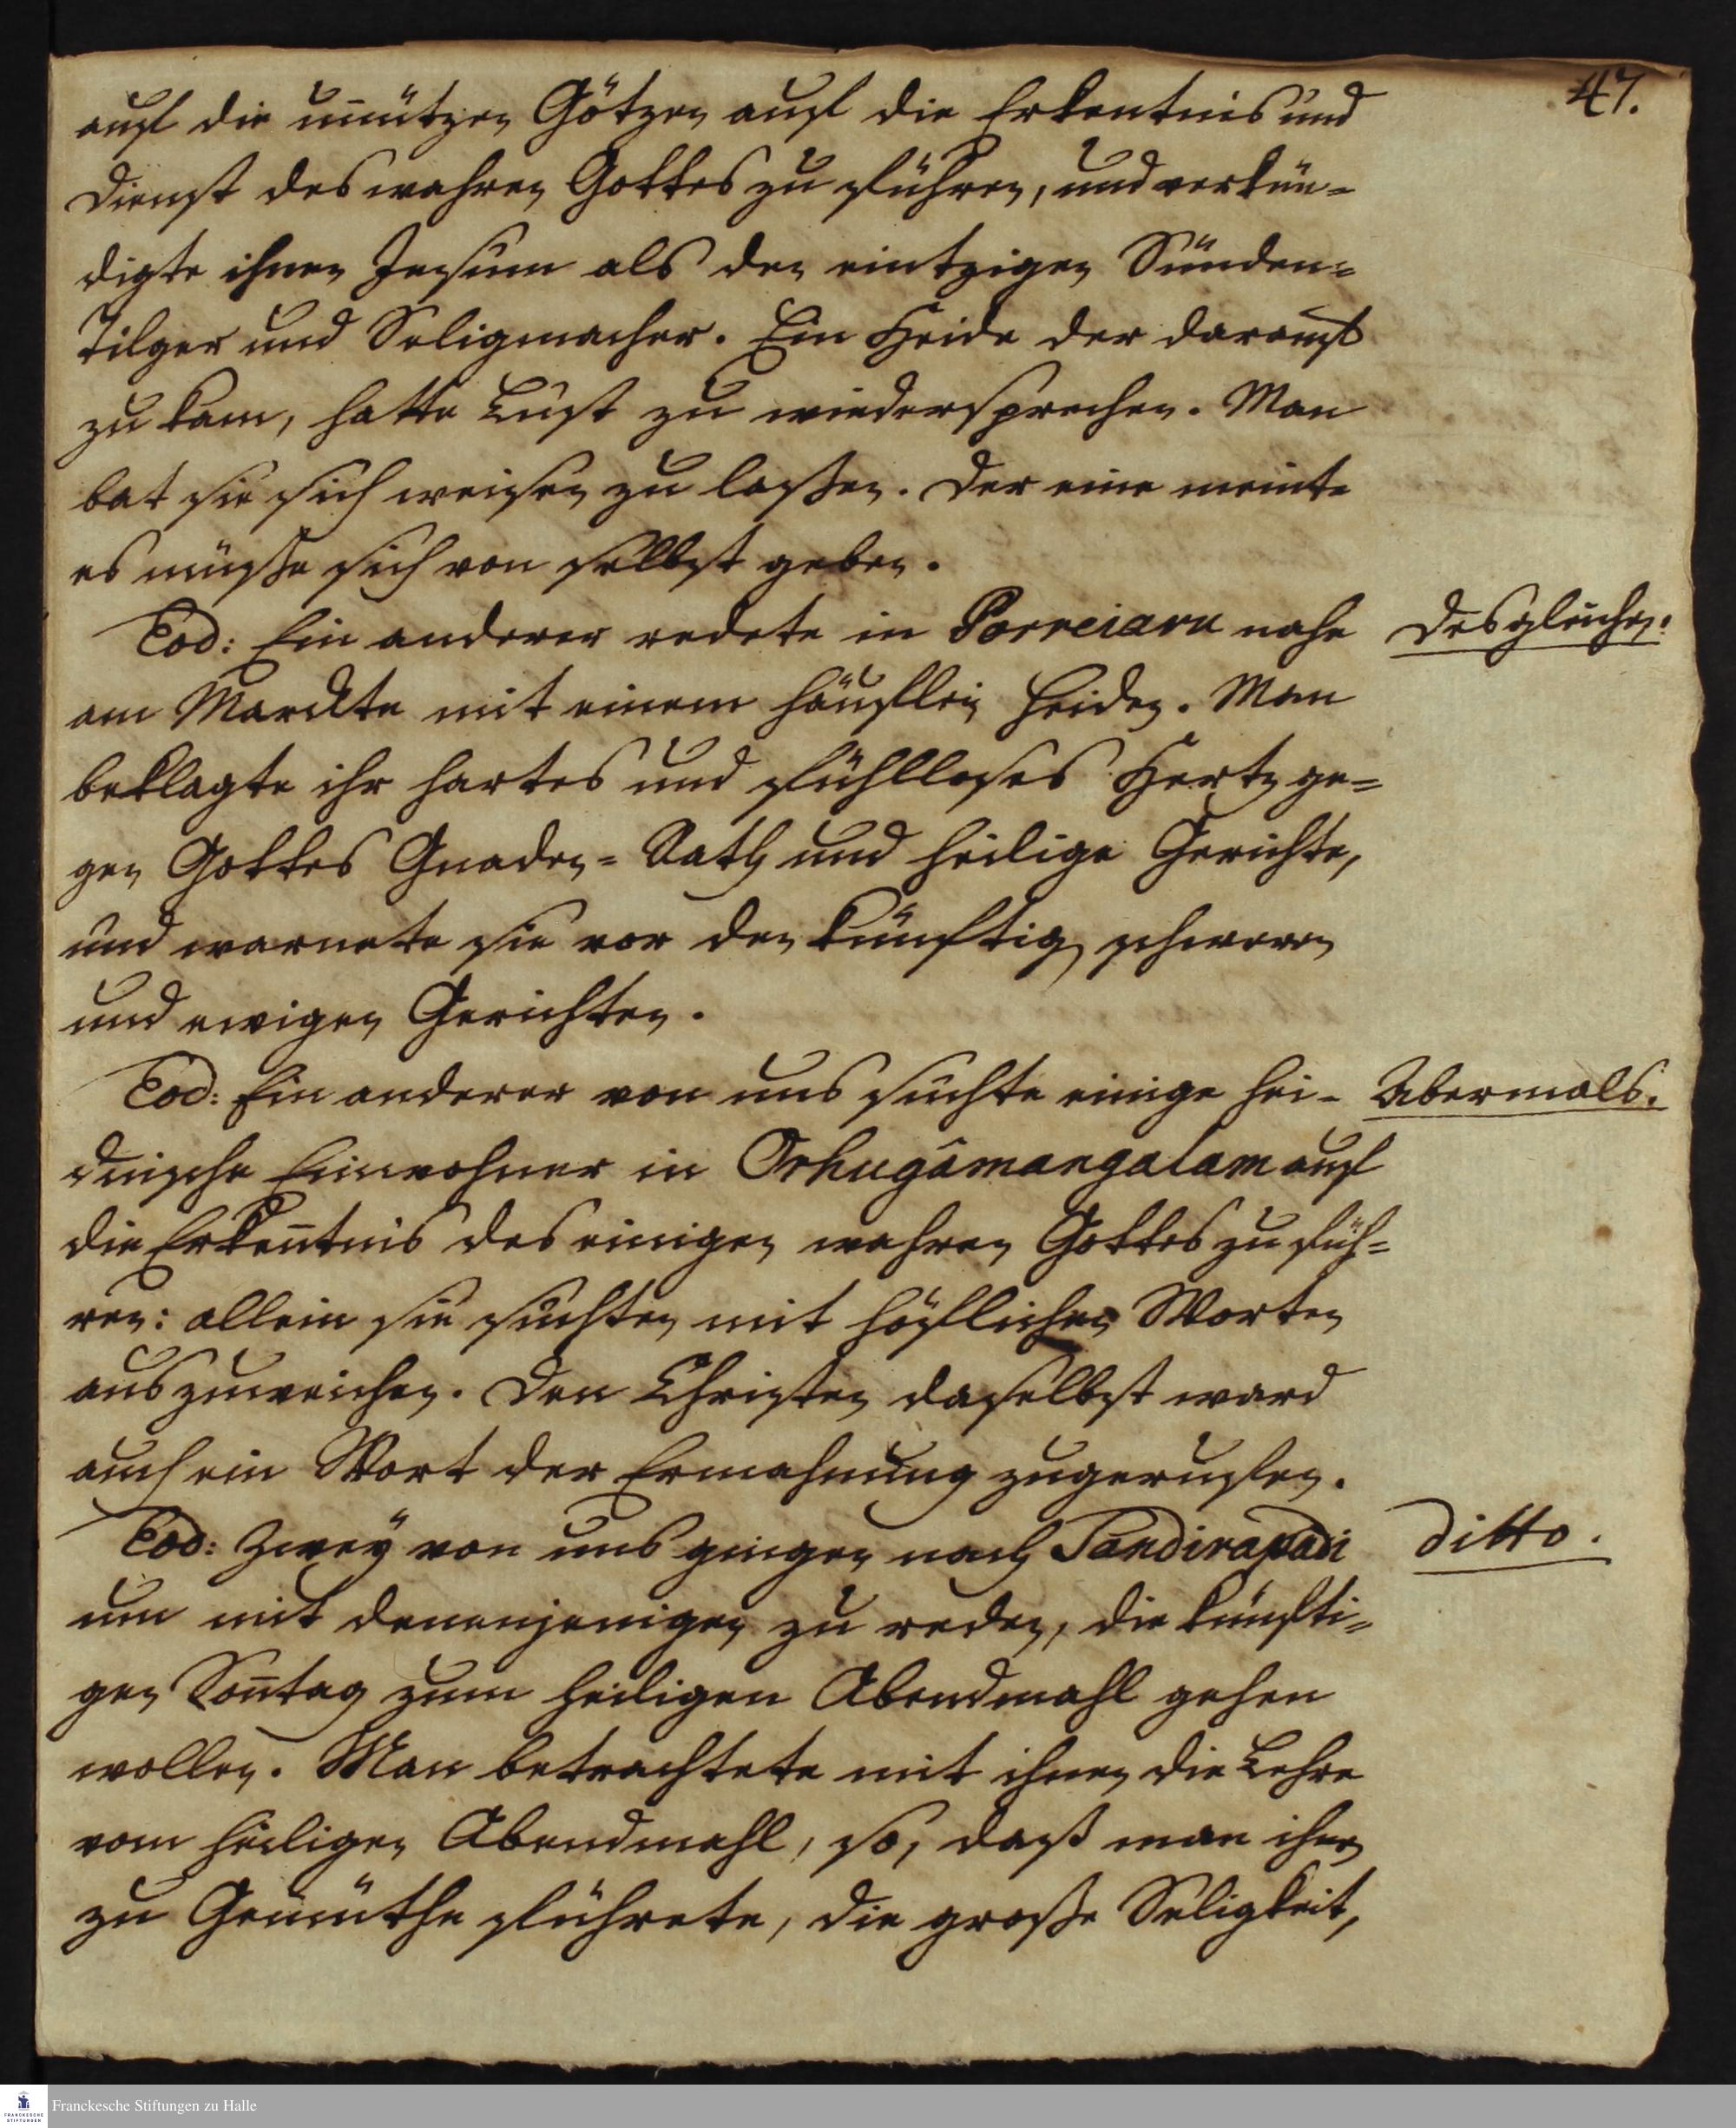 47.
auf die unnützen Götzen auf die Erkentnis und
Dienst des wahren Gottes zu führen, und verkün=
digte ihnen Jesum als den eintzigen Sünden=
Tilger und Seligmacher. Ein Heide der darauf
zu kam, hatte Lust zu wiedersprechen. Man
bat sie sich weisen zu laßen. Der eine meinte
es müße sich von selbst geben.
Eod: Ein anderer redete in Porreiaru nahe
desgleichen.
am Marckte mit einem häuflein Heiden. Man
beklagte ihr hartes und fühlloses Hertz ge=
gen Gottes Gnaden=Rath und heilige Gerichte,
und warnete sie vor den künftig schweren
und ewigen Gerichten.
Eod: Ein anderer von uns suchte einige hei-
Abermals.
dnische Einwohner in Orhugâmangalam auf
die Erkentnis des einigen wahren Gottes zu füh=
ren: allein sie suchten mit höflichen Worten
auszuweichen. Den Christen daselbst ward
auch ein Wort der Ermahnung zugerufen.
Eod: Zwey von uns gingen nach Sandirapadi
ditto.
um mit denenjenigen zu reden, die künfti=
gen Sontag zum heiligen Abendmahl gehen
wollen. Man betrachtete mit ihnen die Lehre
vom heiligen Abendmahl, so, daß man ihnen
zu Gemüthe führete, die große Seligkeit,
Franckesche Stiftungen zu Halle
FRANCKESCHE
STIFTUNGEN